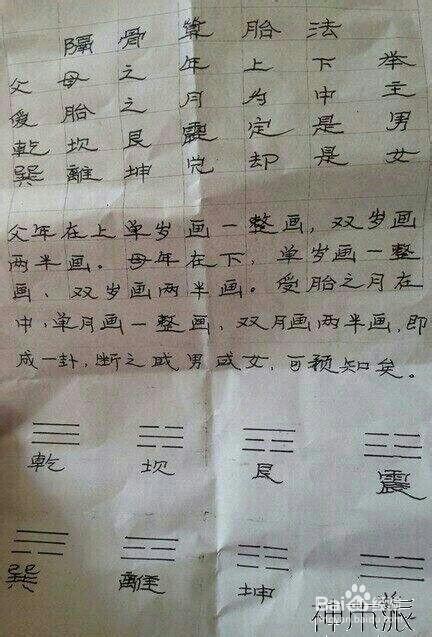 隔骨算胎法
父母之年上下举
受胎之月为中主
乾坎艮震定是男
巽離坤兑却是女
父年在上单岁画一整画，双岁画
两半画。母年在下，单岁画一整
画，双岁画两半画。受胎之月在
中，单月画一整画，双月画两半画，即
成一卦，断之或男或女，可预知矣。
乾 坎 艮 震
巽 離 坤
Bai 百科